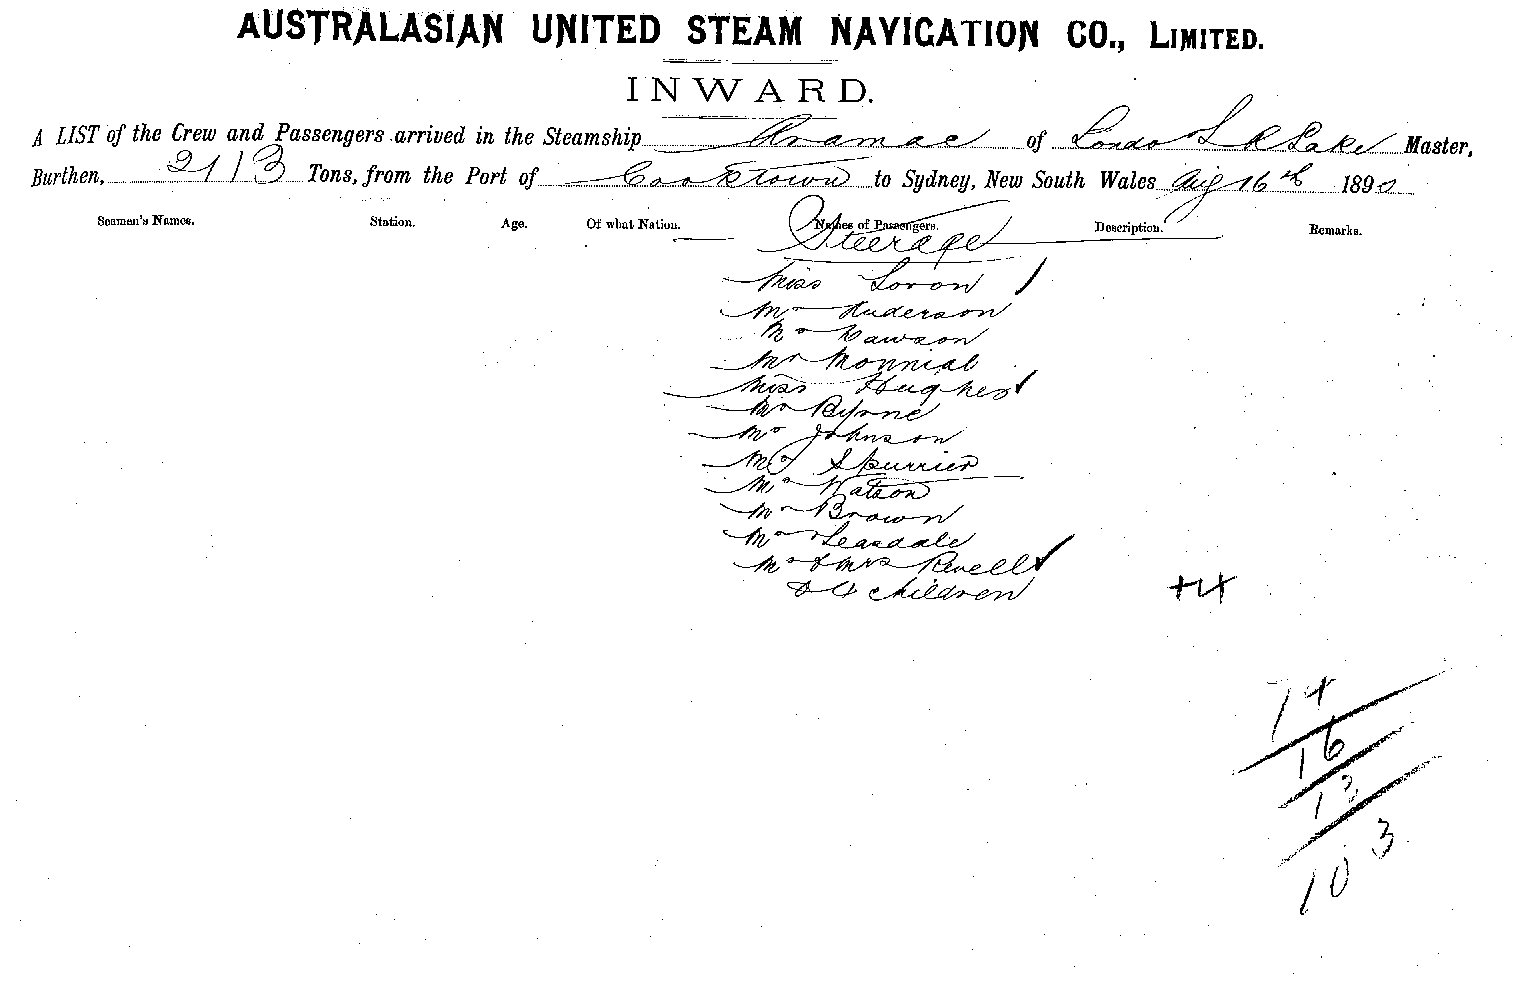 AUSTRALASIAN UNITED STEAM NAVIGATION CO., LIMITED.
INWARD.
A LIST of the Crew and Passengers arrived in the Steamship Aramac of London S R Lake Master,
Burthen, 2113 Tons, from the Port of Cooktown to Sydney, New South Wales Aug 16th 1890
Seamen's Names. Station. Age. Of what Nation. Names of Passengers. Description. Remarks.
Steerage
Miss Soron
Mr Anderson
Mr Dawson
Mr Monnial
Miss Hughes
Mr Byrne
Mr Johnson
Mr Spurrier
Mr Watson
Mr Brown
Mr Teasdale
Mr & Mrs Revell
& 4 children
+4
74
16
13
103